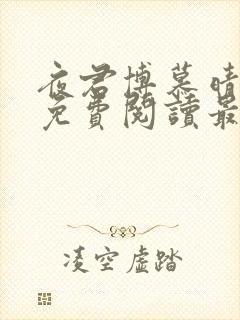 夜君博慕晴
免費閱讀最
凌空虛踏